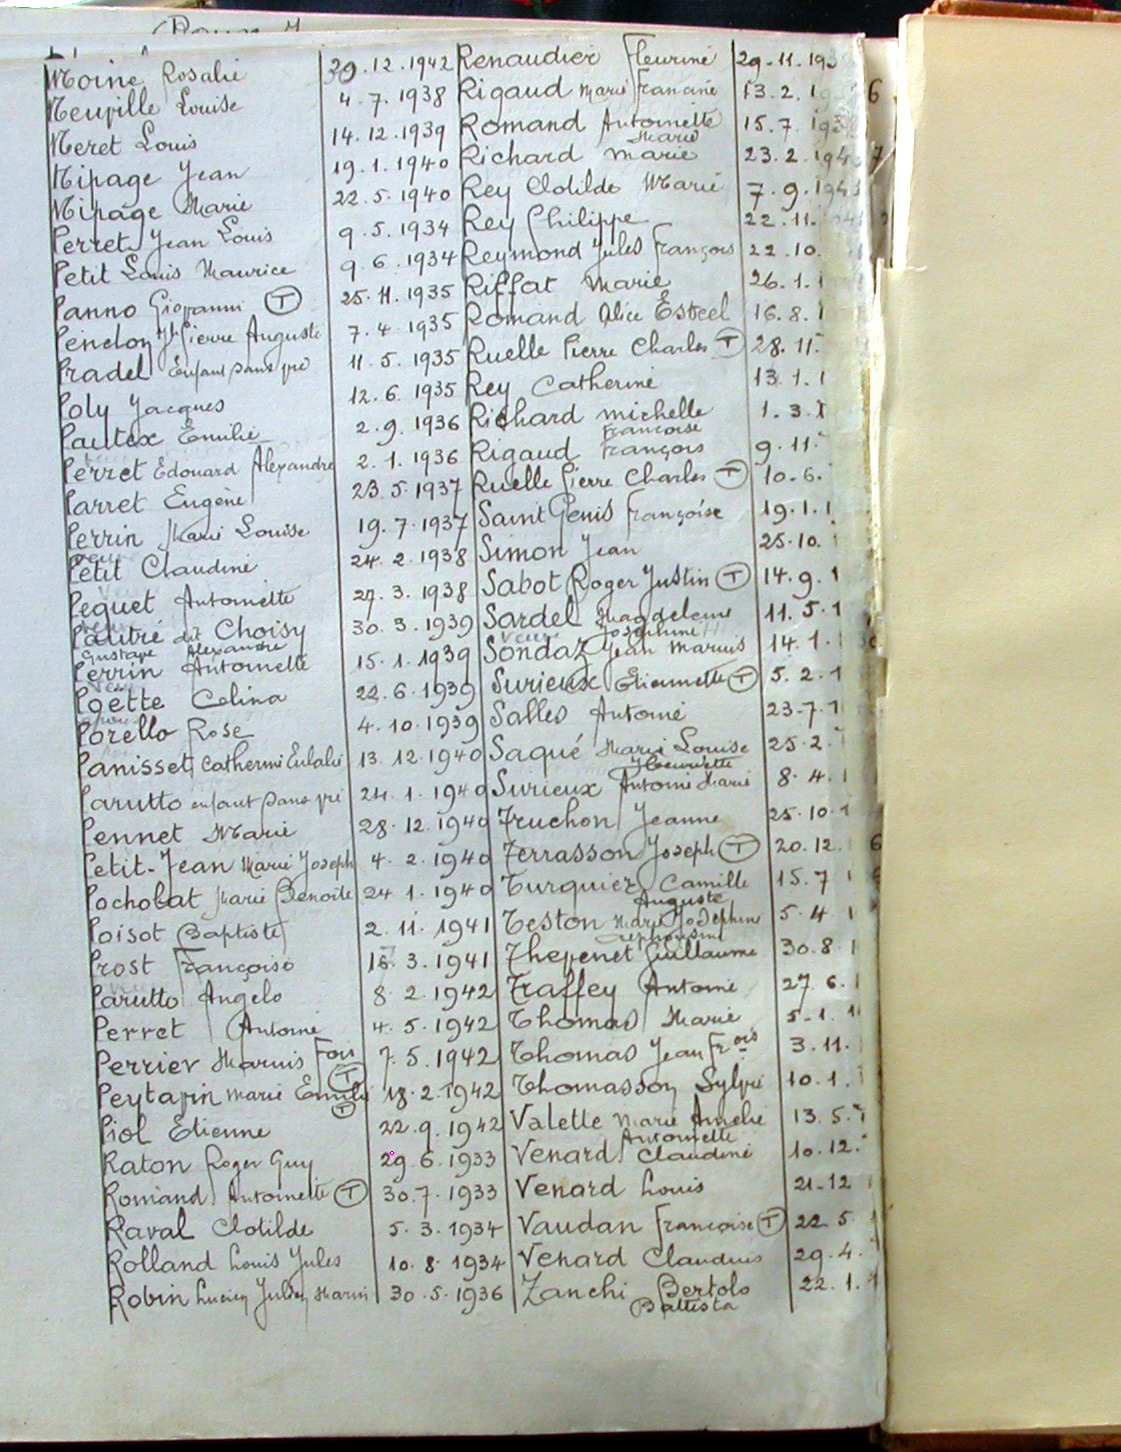 Moine Rosalie 30.12.1942 Renaudier Fleurine 29.11.193
Neuville Louise 4.7.1938 Rigaud Marie Francine 13.2.1
Neret Louis 14.12.1939 Romand Antoinette Marie 15.7.193
Nipage Jean 19.1.1940 Richard Marie 23.2.194
Nipage Marie 22.5.1940 Rey Clotilde Marie 7.9.194
Perret Jean Louis 9.5.1934 Rey Philippe 22.11.
Petit Louis Maurice 9.6.1934 Reymond Jules François 22.10.
Panno Giovanni (T) 25.11.1935 Riffat Marie 26.1.1
Pierre Auguste 7.4.1935 Romand Alice Esteel 16.8.1
Pradel Enfant sans vie 11.5.1935 Ruelle Pierre Charles (T) 28.11.
Poly Jacques 12.6.1935 Rey Catherine 13.1.1
Pautex Emilie 2.9.1936 Richard Michelle Françoise 1.3.1
Perret Edouard Alexandre 2.1.1936 Rigaud François 9.11.
Parret Eugène 23.5.1937 Ruelle Pierre Charles (T) 10.6.
Perrin Marie Louise 19.7.1937 Saint Genis Françoise 19.1.1
Petit Claudine 24.2.1938 Simon Jean 25.10.
Pequet Antoinette 27.3.1938 Sabot Roger Justin (T) 14.9.1
Pautré dit Choisy Gustave Alexandre 30.3.1939 Sardel Magdeleine Josephine 11.5.1
Perrin Antoinette 15.1.1939 Sondaz Jean Marius 14.1.
Pgette Celina 22.6.1939 Surieux Etiennette (T) 5.2.1
Porello Rose 4.10.1939 Salles Antoine 23.7.1
Panisset Catherine Eulalie 13.12.1940 Saqué Marie Louise Henriette 25.2.
Parutto enfant sans vie 24.1.1940 Surieux Antoine Marie 8.4.1
Pennet Marie 28.12.1940 Truchon Jeanne 25.10.1
Petit-Jean Marie Joseph 4.2.1940 Terrasson Joseph (T) 20.12.
Pochobat Marie Benoite 24.1.1940 Turquier Camille Auguste 15.7
Poisot Baptiste 2.11.1941 Teston Marie Josephine 5.4
Prost Françoise 3.1941 Thevenet Guillaume 30.8.1
Parutto Angelo 8.2.1942 Traffey Antoine 27.6.1
Perret Antoine 4.5.1942 Thomas Marie 5.1.1
Perrier Marius Fois (T) 7.5.1942 Thomas Jean Frois 3.11.
Peytavin Marie Emily (T) 18.2.1942 Thomasson Sylvie 10.1.
Piol Etienne 22.9.1942 Valette Marie Amelie Antoinette 13.5.
Raton Roger Guy 29.6.1933 Venard Claudine 10.12.
Romand Antoinette (T) 30.7.1933 Venard Louis 21.12
Raval Clotilde 5.3.1934 Vaudan Françoise (T) 22.5.
Rolland Louis Jules 10.8.1934 Venard Claudius 29.4.
Robin Lucien Julien Marin 30.5.1936 Zanchi Bertolo Battista 22.1.1